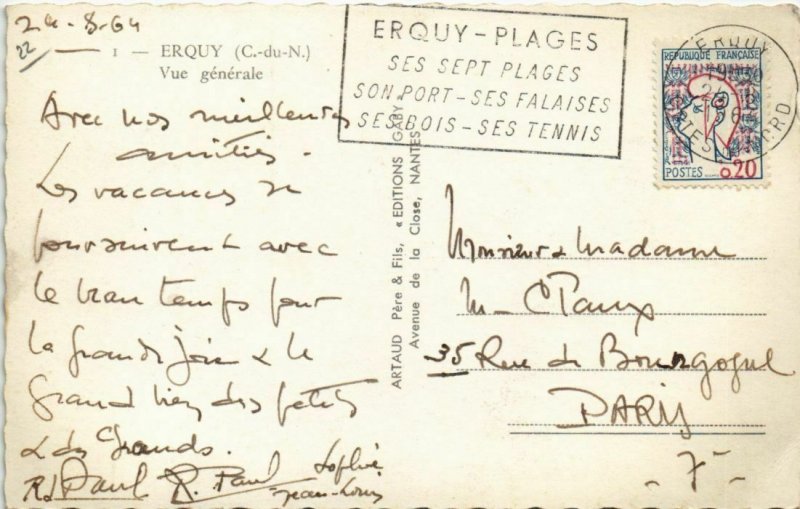 24-8-64
22
1 — ERQUY (C.-du-N.)
Vue générale
Avec nos meilleures
amitiés.
Les vacances se
poursuivent avec
le beau temps pour
la grande joie & le
grand bien des petits
& des Grands.
Paul R. Paul Sophie
Jean-Louis
ERQUY-PLAGES
SES SEPT PLAGES
SON PORT-SES FALAISES
SES BOIS-SES TENNIS
ERQUY
COTES DU NORD
REPUBLIQUE FRANÇAISE
POSTES 0,20
ARTAUD Père & Fils, «EDITIONS GABY»
Avenue de la Close, NANTES
Monsieur & Madame
35 Rue de Bourgogne
PARIS
- 7e -